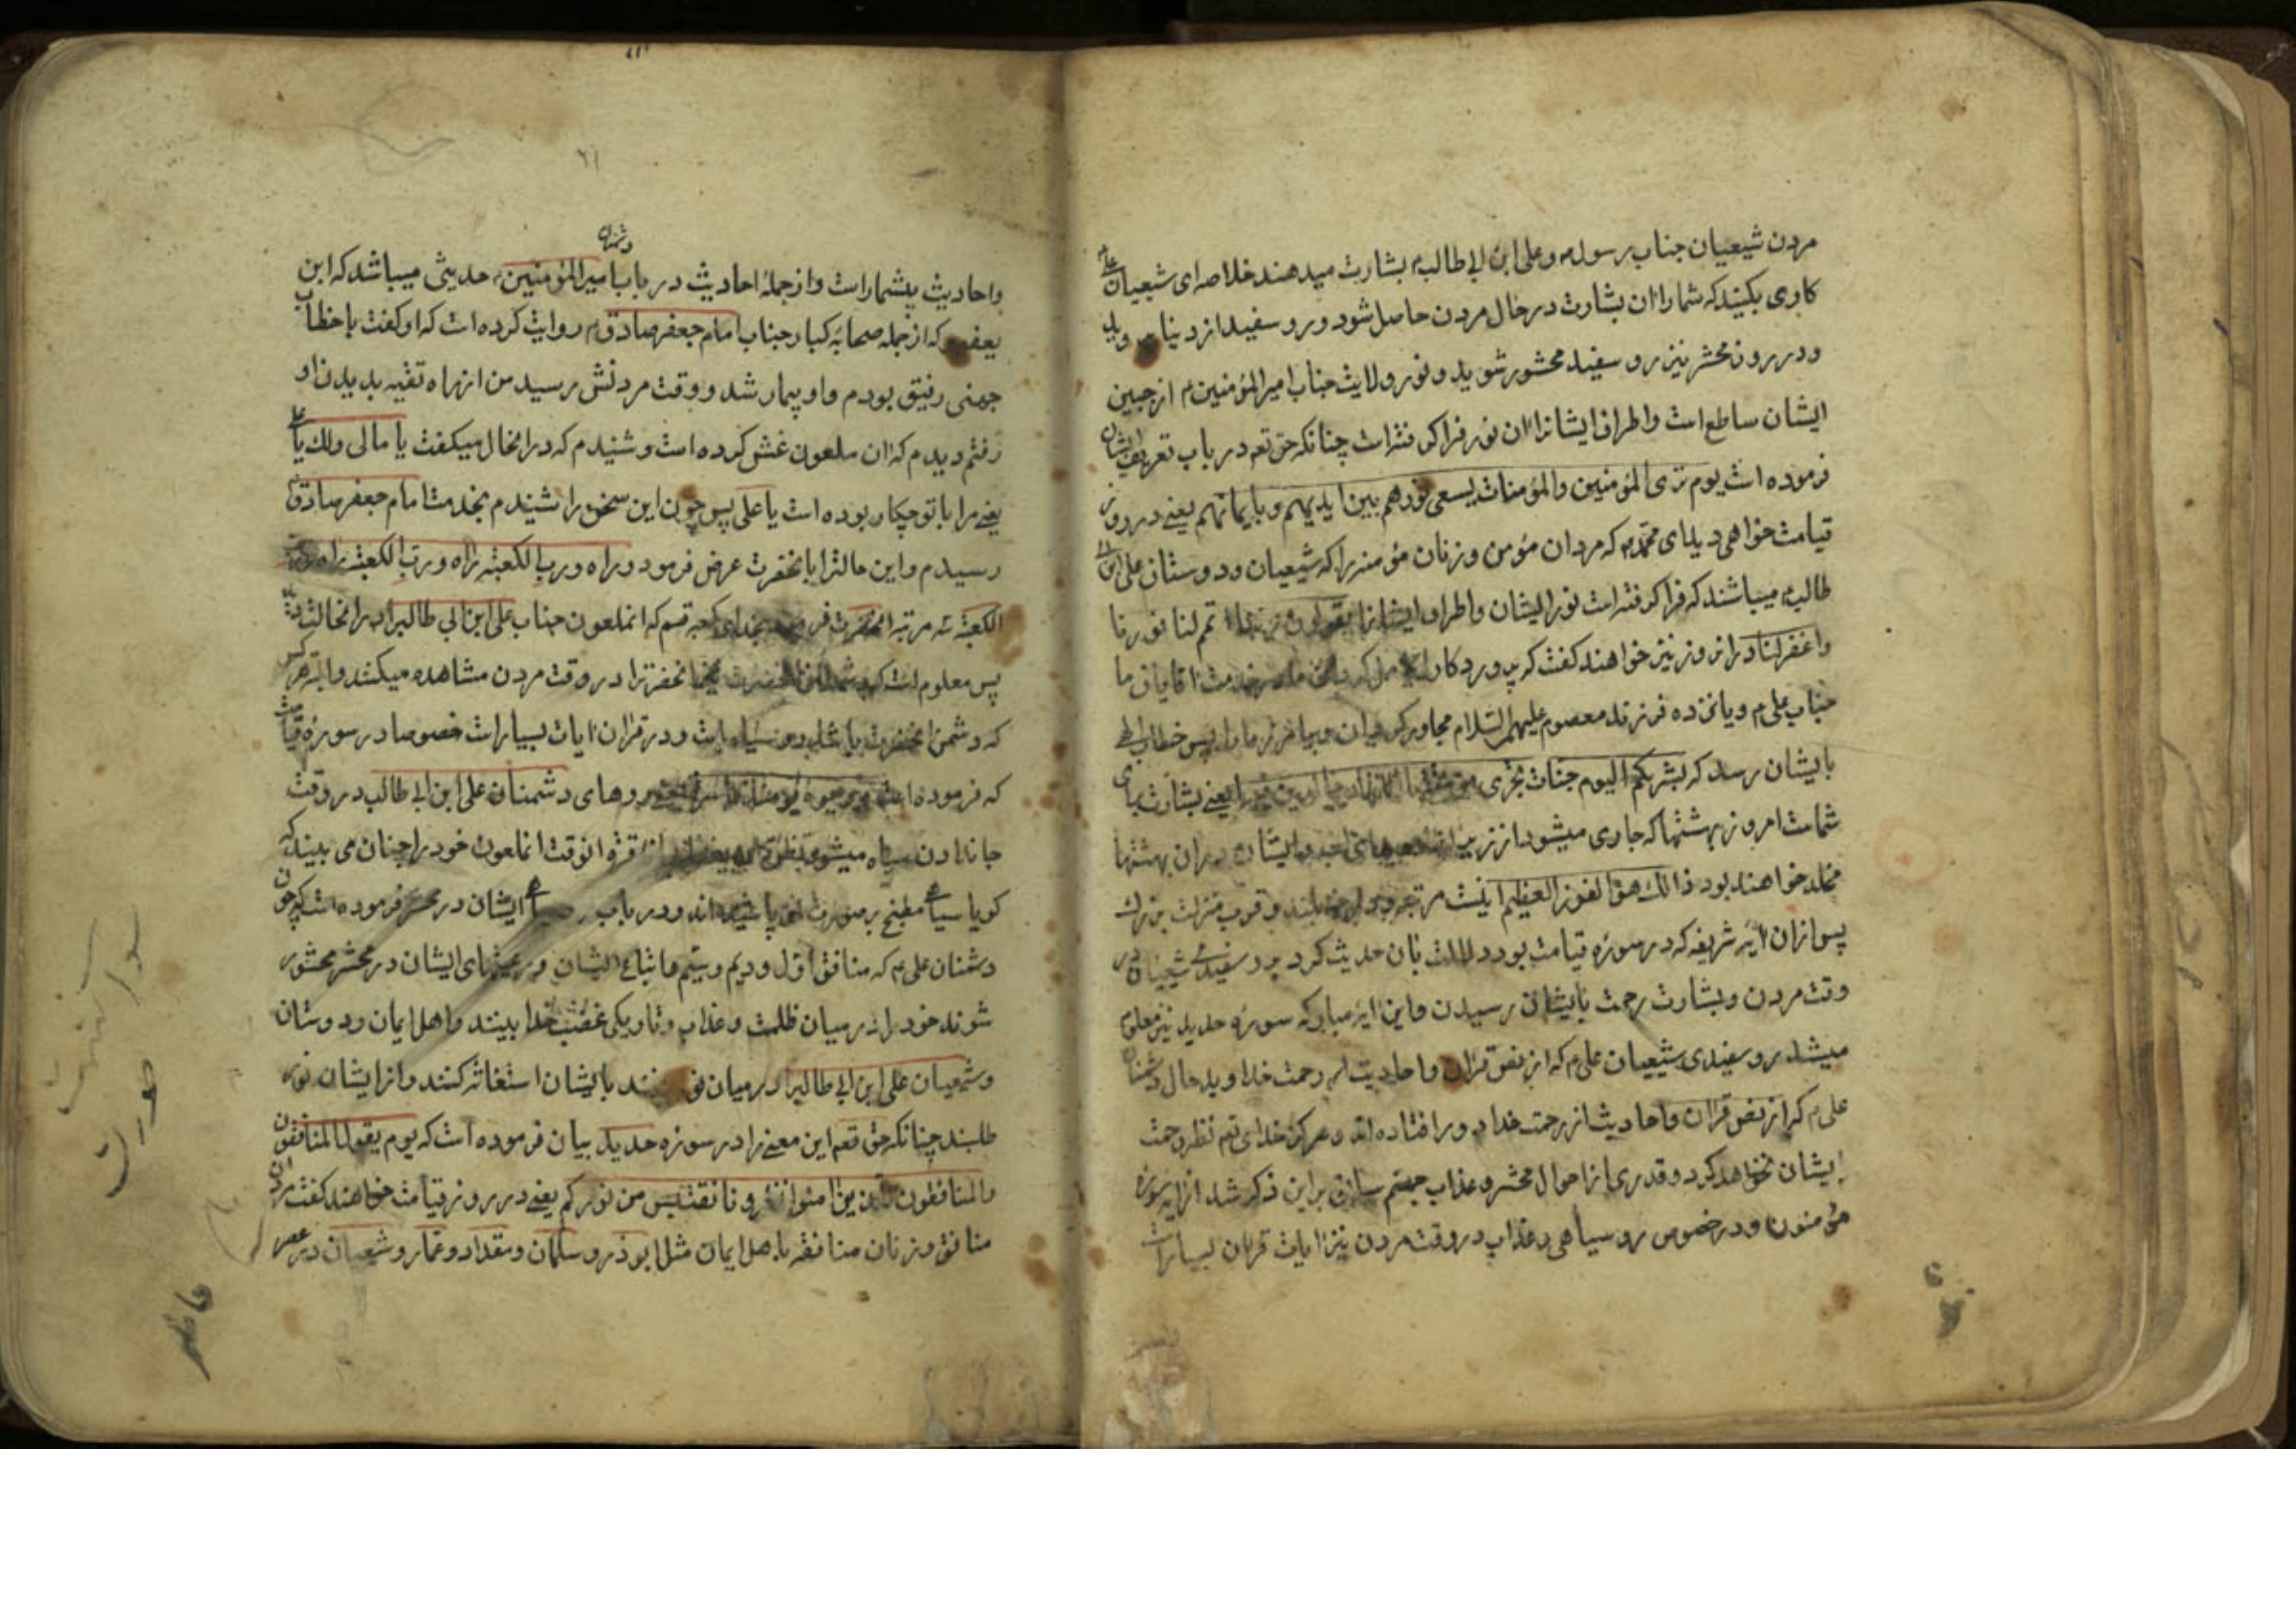 مردن شیعیان جناب رسول ص و علی ابن ابی طالب ع بشارت میدهند خلاصه ای شیعیان علی
کاری بکنید که شما را ان بشارت در حال مردن حاصل شود و رو سفید از دنیا
و در روز محشر نیز رو سفید محشور شوید و نور ولایت جناب امیرالمؤمنین ع از جبین
ایشان ساطع است و اطراف ایشانرا ان نور فرا کرفته است چنانکه حق تعه در باب تعریف ایشان
فرموده است یوم تری المؤمنین والمؤمنات یسعی نورهم بین ایدیهم و بایمانهم یعنی در روز
قیامت خواهی دید ای محمد ص که مردان مؤمن و زنان مؤمنه را که شیعیان و دوستان علی ابن ابی
طالب ع میباشند که فرا کرفته است نور ایشان و اطراف ایشانرا یقولون ربنا اتمم لنا نورنا
واغفر لنا در ان روز نیز خواهند کفت که پروردکارا خدمت اقایان ما
جناب علی ع و یازده فرزند معصوم علیهم السلام مجاور پس خطاب الهی
بایشان رسد که بشریکم الیوم جنات تجری من تحتها الانهار خالدین فیها یعنی بشارت باد
شما امروز بهشتها که جاری میشود از زیر ایشان در ان بهشتها
مخلد خواهند بود ذالک هو الفوز العظیم اینست مرتبه بلند و قرب منزلت بزرک
پس از ان ایه شریفه که در سوره قیامت بود دلالت بان حدیث کرد رو سفیدی شیعیان در
وقت مردن و بشارت رحمت بایشان رسیدن و این ایه مبارکه سوره حدید نیز معلوم
میشد رو سفیدی شیعیان علی ع که از نص قران و احادیث رحمت خدا و بد حال دشمنان
علی ع که از نص قران و احادیث از رحمت خدا دور افتاده اند و هرکز خدای تعه نظر رحمت
ایشان نخواهد کرد و قدری از احوال محشر و عذاب جهنم سابق بر این ذکر شد از ایه سوره
مؤمنون و در خصوص رو سیاهی و عذاب در وقت مردن نیز ایات قران بسیار است
۱۶
دشمنان
واحادیث بیشمار است و از جمله احادیث در باب امیرالمؤمنین ع حدیثی میباشد که ابن
یعفور که از جمله صحابه کبار جناب امام جعفر صادق ع روایت کرده است که او کفت با خطاب
جهنی رفیق بودم و او بیمار شد و وقت مردنش رسید من از راه تقیه بدیدن او
رفتم دیدم که ان ملعون غش کرده است و شنیدم که در انحال میکفت یا مالی ولک یا علی
یعنی مرا با تو چکار بوده است یا علی پس چون این سخن را شنیدم بخدمت امام جعفر صادق ع
رسیدم و این حالترا بانحضرت عرض فرمود وراه ورب الکعبته راه ورب الکعبته راه ورب
الکعبته سه مرتبه انحضرت فرمود بخدای کعبه قسم که انملعون جناب علی ابن ابی طالبرا در انحالت دید
پس معلوم است که انحضرترا در وقت مردن مشاهده میکنند والبته هر کس
که دشمن انحضرت باشد رو سیاه است و در قران ایات بسیار است خصوصا در سوره قیامت
که فرموده است ووجوه یومئذ باسرة یعنی روهای دشمنان علی ابن ابی طالب در وقت
جان دادن سیاه میشود تظن ان یفعل بها فاقرة انوقت انملعون خود را چنان می بیند که
کویا سیاهی مطبخ بر صورت او پاشیده اند و در باب رو سیاهی ایشان در محشر فرموده است که چون
دشمنان علی ع که منافق اول و دیم و سیم و اتباع ایشان در محشر محشور
شوند خود را در میان ظلمت و عذاب و تاریکی غضب خدا بینند و اهل ایمان و دوستان
و شیعیان علی ابن ابی طالبرا در میان نور بینند بایشان استغاثه کنند و از ایشان نور
طلبند چنانکه حق تعه این معنی را در سوره حدید بیان فرموده است که یوم یقول المنافقون
والمنافقون للذین امنوا انظرونا نقتبس من نورکم یعنی در روز قیامت خواهند کفت مردان
منافق و زنان منافقه باهل ایمان مثل ابوذر و سلمان و مقداد و عمار و شیعیان در عصر